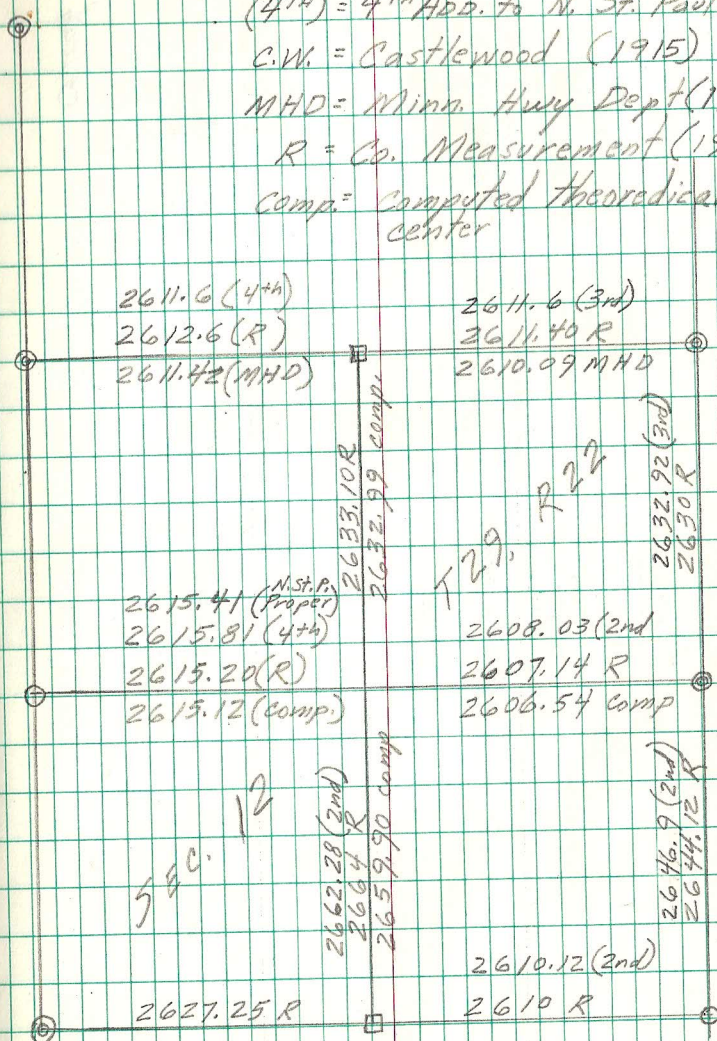 (4th) = 4th Add. to N. St. Paul
C.W. = Castlewood (1915)
MHD = Minn. Hwy Dept (1
R = Co. Measurement (19
Comp. = Computed theoredical
center
2611.6 (4th)
2612.6 (R)
2611.42 (MHD)
2611.6 (3rd)
2611.40 R
2610.09 MHD
2633.10 R
2632.99 comp.
T 29, R 22
2632.92 (3rd)
2630 R
2615.41 (N.St.P. Proper)
2615.81 (4th)
2615.20 (R)
2615.12 (comp.)
2608.03 (2nd
2607.14 R
2606.54 comp
Sec. 12
2662.28 (2nd)
2664 R
2659.90 comp
2646.9 (2nd)
2644.12 R
2627.25 R
2610.12 (2nd)
2610 R